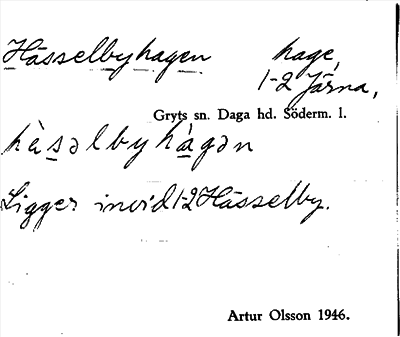 Hässelbyhagen hage,
1-2 Järna,
Gryts sn. Daga hd. Söderm. l.
hàsəlbyhágən
Ligger invid 1-2 Hässelby.
Artur Olsson 1946.